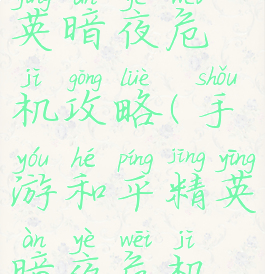 jīng àn yè wēi
英暗夜危
jī gōng lüè shǒu
机攻略(手
yóu hé píng jīng yīng
游和平精英
àn yè wēi jī
暗夜危机